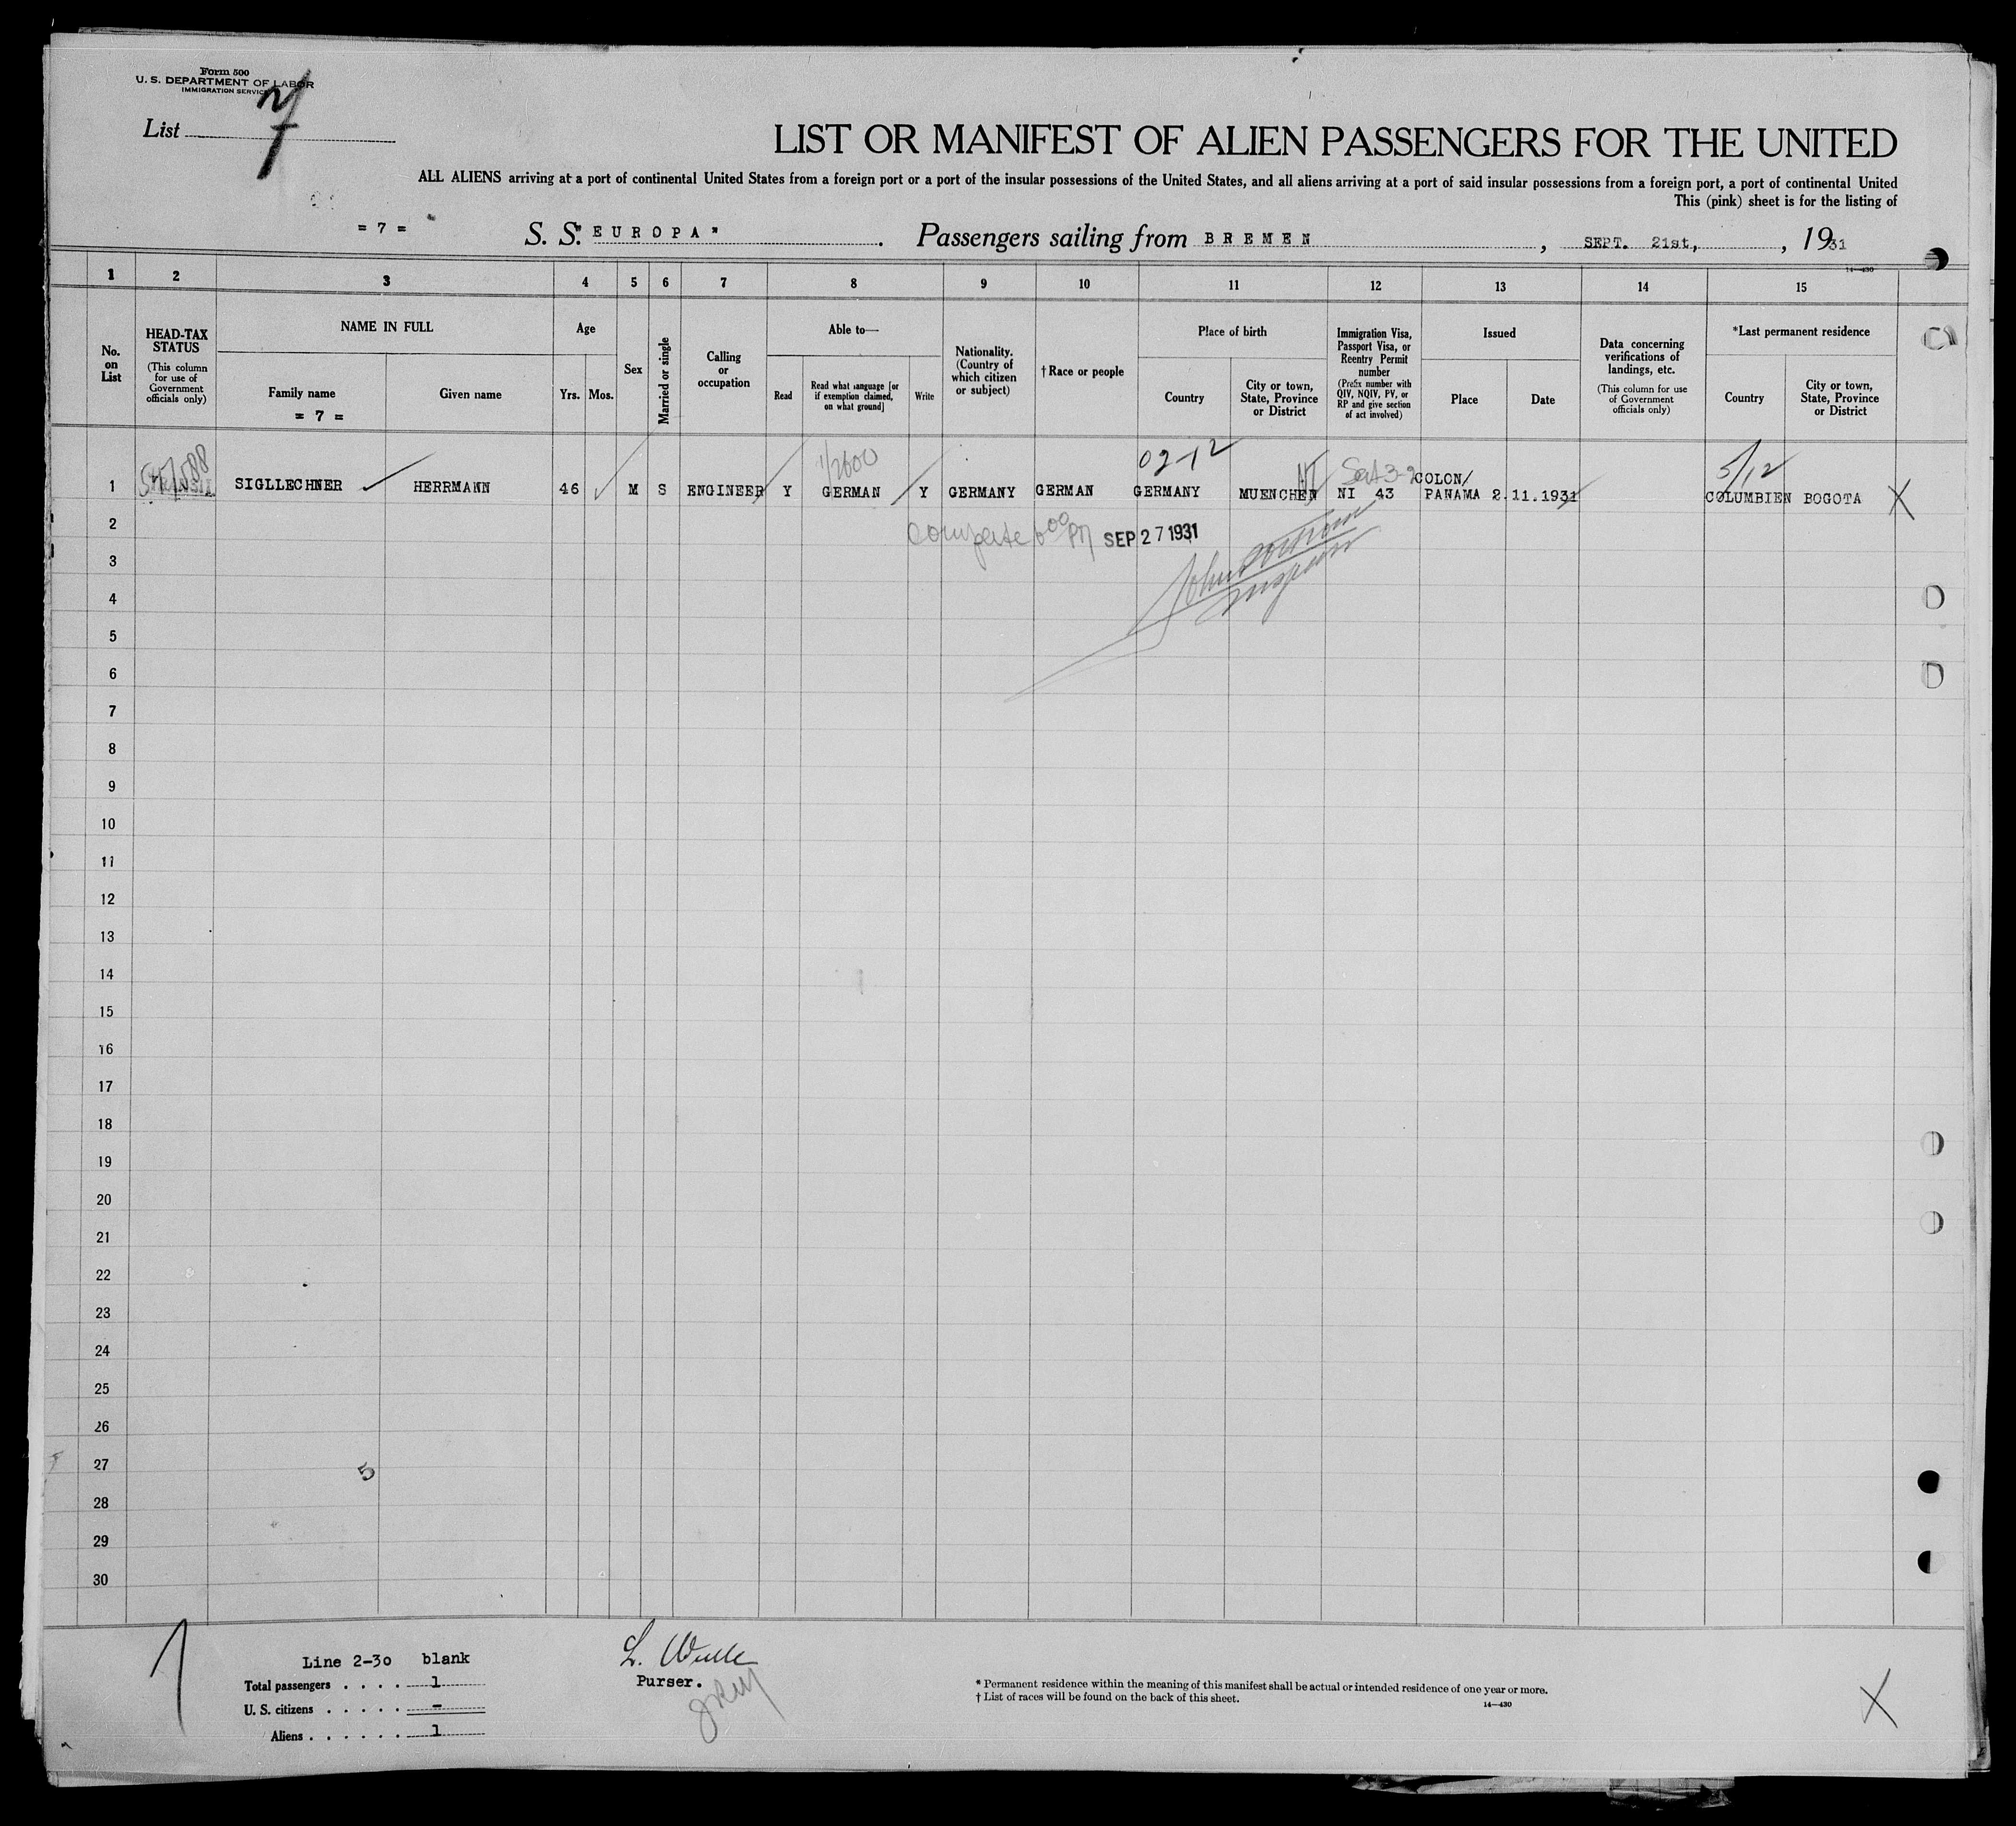 Form 500
U. S. DEPARTMENT OF LABOR
IMMIGRATION SERVICE
List 7
LIST OR MANIFEST OF ALIEN PASSENGERS FOR THE UNITED
ALL ALIENS arriving at a port of continental United States from a foreign port or a port of the insular possessions of the United States, and all aliens arriving at a port of said insular possessions from a foreign port, a port of continental United
This (pink) sheet is for the listing of
= 7 = S. S. "EUROPA" Passengers sailing from BREMEN, SEPT. 21st, , 1931
14—430
1 2 3 4 5 6 7 8 9 10 11 12 13 14 15
No. on List
HEAD-TAX STATUS
(This column for use of Government officials only)
NAME IN FULL
Family name
= 7 =
Given name
Age
Yrs. Mos.
Sex
Married or single
Calling or occupation
Able to—
Read
Read what language [or if exemption claimed, on what ground]
Write
Nationality. (Country of which citizen or subject)
†Race or people
Place of birth
Country
City or town, State, Province or District
Immigration Visa, Passport Visa, or Reentry Permit number
(Prefix number with QIV, NQIV, PV, or RP and give section of act involved)
Issued
Place
Date
Data concerning verifications of landings, etc.
(This column for use of Government officials only)
*Last permanent residence
Country
City or town, State, Province or District
1/2600 02-12 5/12
1 SIGLLECHNER HERRMANN 46 M S ENGINEER Y GERMAN Y GERMANY GERMAN GERMANY MUENCHEN NI 43 COLON/ PANAMA 2.11.1931 COLUMBIEN BOGOTA X
2 SEP 27 1931
3
4
5
6
7
8
9
10
11
12
13
14
15
16
17
18
19
20
21
22
23
24
25
26
27 5
28
29
30
Line 2-30 blank
Total passengers . . . . 1
U. S. citizens . . . . . -
Aliens . . . . . . 1
Purser.
* Permanent residence within the meaning of this manifest shall be actual or intended residence of one year or more.
† List of races will be found on the back of this sheet.
14—430
X